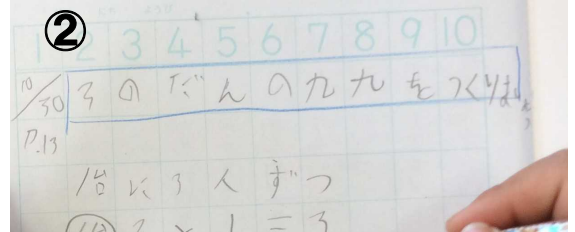 ②
1 2 3 4 5 6 7 8 9 10
10/30 3のだんの九九をつくりましょう
P.13
1台に3人ずつ
3×1=3